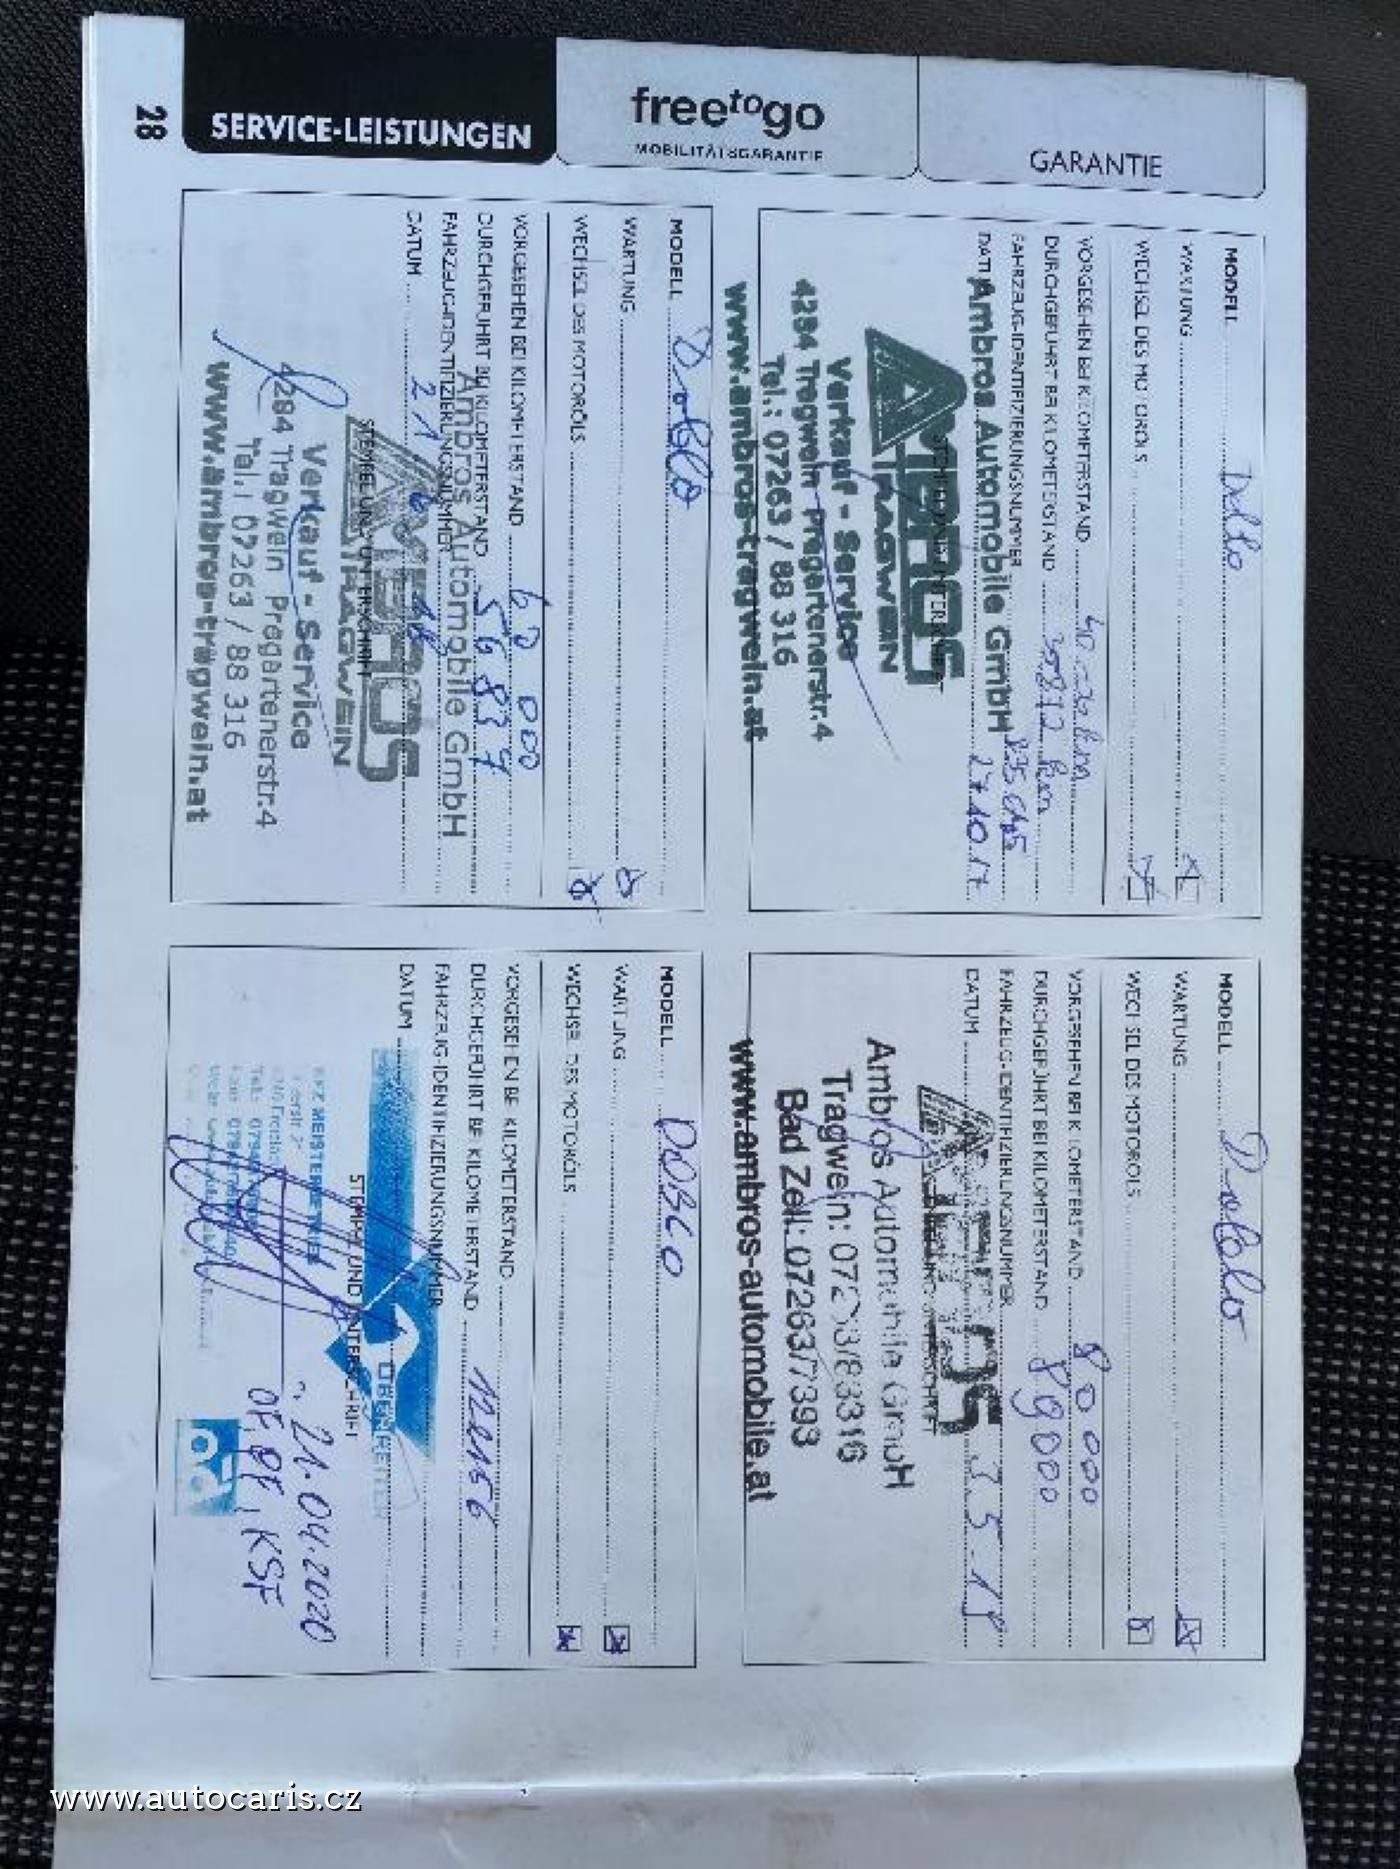 28
SERVICE-LEISTUNGEN
freetogo
MOBILITÄTSGARANTIE
GARANTIE
MODELL Doblo
WARTUNG
WECHSEL DES MOTORÖLS
VORGESEHEN BEI KILOMETERSTAND
DURCHGEFÜHRT BEI KILOMETERSTAND
FAHRZEUG-IDENTIFIZIERUNGSNUMMER
DATUM 27.10.17
Ambros Automobile GmbH
AMBROS
TRAGWEIN
Verkauf - Service
4284 Tragwein Pregartenerstr.4
Tel.: 07263 / 88 316
www.ambros-tragwein.at
MODELL Doblo
WARTUNG
WECHSEL DES MOTORÖLS
VORGESEHEN BEI KILOMETERSTAND 80 000
DURCHGEFÜHRT BEI KILOMETERSTAND 89000
FAHRZEUG-IDENTIFIZIERUNGSNUMMER
DATUM
AMBROS
Ambros Automobile GmbH
Tragwein: 07263/88316
Bad Zell: 07263/7393
www.ambros-automobile.at
MODELL Doblo
WARTUNG
WECHSEL DES MOTORÖLS
VORGESEHEN BEI KILOMETERSTAND 60 000
DURCHGEFÜHRT BEI KILOMETERSTAND 56837
FAHRZEUG-IDENTIFIZIERUNGSNUMMER
Ambros Automobile GmbH
DATUM
AMBROS
STEMPEL UND UNTERSCHRIFT
TRAGWEIN
Verkauf - Service
4284 Tragwein Pregartenerstr.4
Tel.: 07263 / 88 316
www.ambros-tragwein.at
MODELL DOBLO
WARTUNG
WECHSEL DES MOTORÖLS
VORGESEHEN BEI KILOMETERSTAND
DURCHGEFÜHRT BEI KILOMETERSTAND
FAHRZEUG-IDENTIFIZIERUNGSNUMMER
DATUM
STEMPEL UND UNTERSCHRIFT
KFZ MEISTERBETRIEB
21.04.2020
www.autocaris.cz